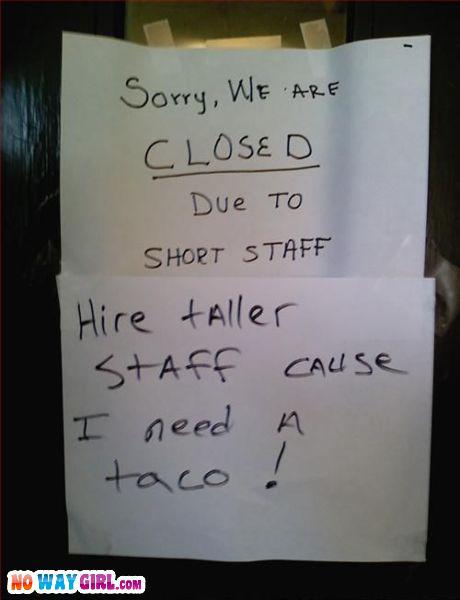 Sorry, WE ARE
CLOSED
DUE TO
SHORT STAFF
Hire tAller
STAFF CAUSE
I need A
taco!
NO WAY GIRL.com